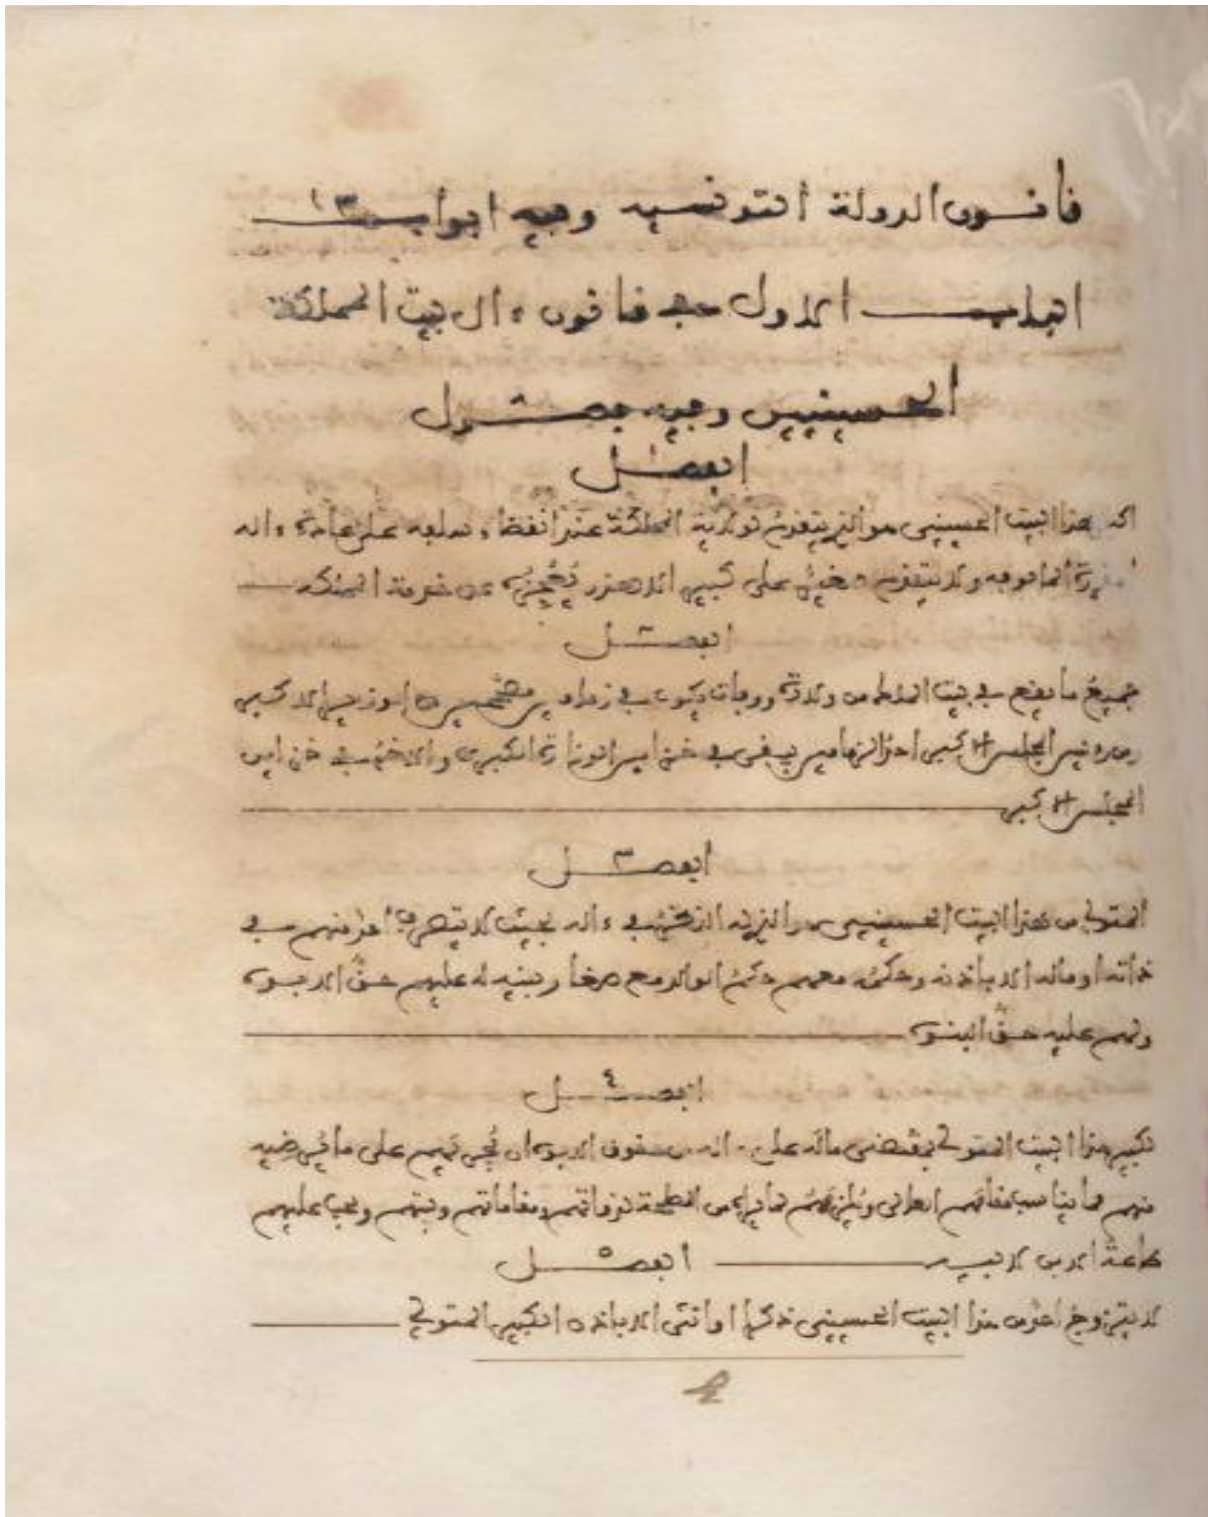 قانون الدولة التونسية وفيه ابواب ١٣
الباب الاول في قانون ءال بيت المملكة
الحسينيين وفيه فصول
الفصل ١
هذا البيت الحسيني هو الذي يتقدم توارثه المملكة عند انقضاء على عادة ءاله
المالوفه ولا يتقدم صغير على كبير الا لعذر يعجزه عن خدمة المملكه
الفصل ٢
جميع ما يقع في بيت الملك من ولادة ووفات يكون في زمامين مصححين من الوزير الاكبر
ورئيس المجلس الاكبر احد الزمامين يبقى في خزاين الوزارة الكبرى والاخر في خزاين
المجلس الاكبر
الفصل ٣
المتولي من هذا البيت الحسيني هو الذي له النظر في ءاله بحيث لا يتصرف احد منهم في
ذاته او ماله الا باذنه وحكمه معهم حكم الوالد مع صغار بنيه له عليهم حق الابوة
ولهم عليه حق البنوة
الفصل ٤
لكبير هذا البيت المتولي بمقتضى ماله على ءاله من حقوق الابوة ان يجري لهم على ما يرضيه
منهم مما يناسب مقامهم العالي ويلزمهم بما يراه من المصلحة لذواتهم ومقاماتهم وبيتهم ويجب عليهم
طاعة الابن لابيه الفصل ٥
لا يتزوج احد من هذا البيت الحسيني ذكرا او انثى الا باذن الكبير المتولي